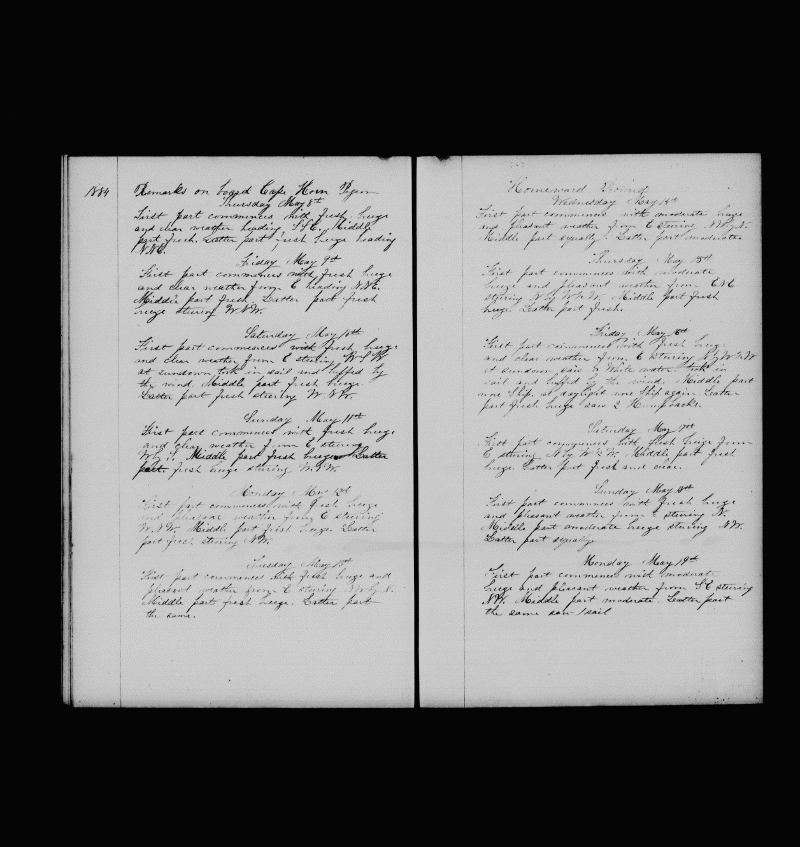 1884
Remarks on board Cape Horn Pigeon
Thursday May 8th
First part commences with fresh breeze
and clear weather heading SSE. Middle
part fresh. Latter part fresh breeze heading
N.N.E.
Friday May 9th
First part commences with fresh breeze
and clear weather from E heading N.N.E.
Middle part fresh. Latter part fresh
breeze steering W.N.W.
Saturday May 10th
First part commences with fresh breeze
and clear weather from E steering
at sundown took in sail and luffed by
the wind. Middle part fresh breeze.
Latter part fresh steering W.N.W.
Sunday May 11th
First part commences with fresh breeze
and clear weather from E steering
Middle part fresh breeze Latter
part fresh breeze steering
Monday May 12th
First part commences with fresh breeze
and pleasant weather from E steering
W.N.W. Middle part fresh breeze. Latter
part fresh steering N.W.
Tuesday May 13th
First part commences with fresh breeze and
pleasant weather from E steering
Middle part fresh breeze. Latter part
the same.
Homeward Bound
Wednesday May 14th
First part commences with moderate breeze
and pleasant weather from E steering
Middle part squally. Latter part moderate
Thursday May 15th
First part commences with moderate
breeze and pleasant weather from ENE
steering Middle part fresh
breeze Latter part fresh.
Friday May 16th
First part commences with fresh breeze
and clear weather from E steering
at sundown saw white water took in
sail and luffed by the wind. Middle part
wore Ship. at daylight wore Ship again Latter
part fresh breeze saw 2 Humpbacks.
Saturday May 17th
First part commences with fresh breeze from
E steering Middle part fresh
breeze Latter part fresh and clear.
Sunday May 18th
First part commences with fresh breeze
and plesant weather from steering
Middle part moderate breeze steering NW.
Latter part squally
Monday May 19th
First part commences with moderate
breeze and pleasant weather from SE steering
NW. Middle part moderate. Latter part
the same saw 1 sail